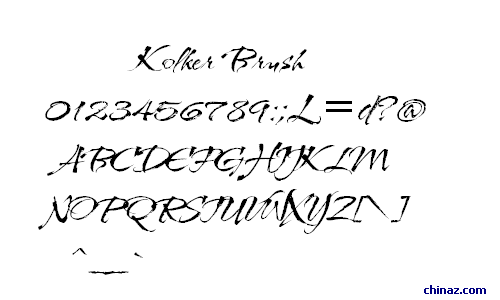 Kolker Brush
0123456789:;L=d?@
ABCDEFGHIJKLM
NOPQRSTUVWXYZ[\]
^_`
chinaz.com